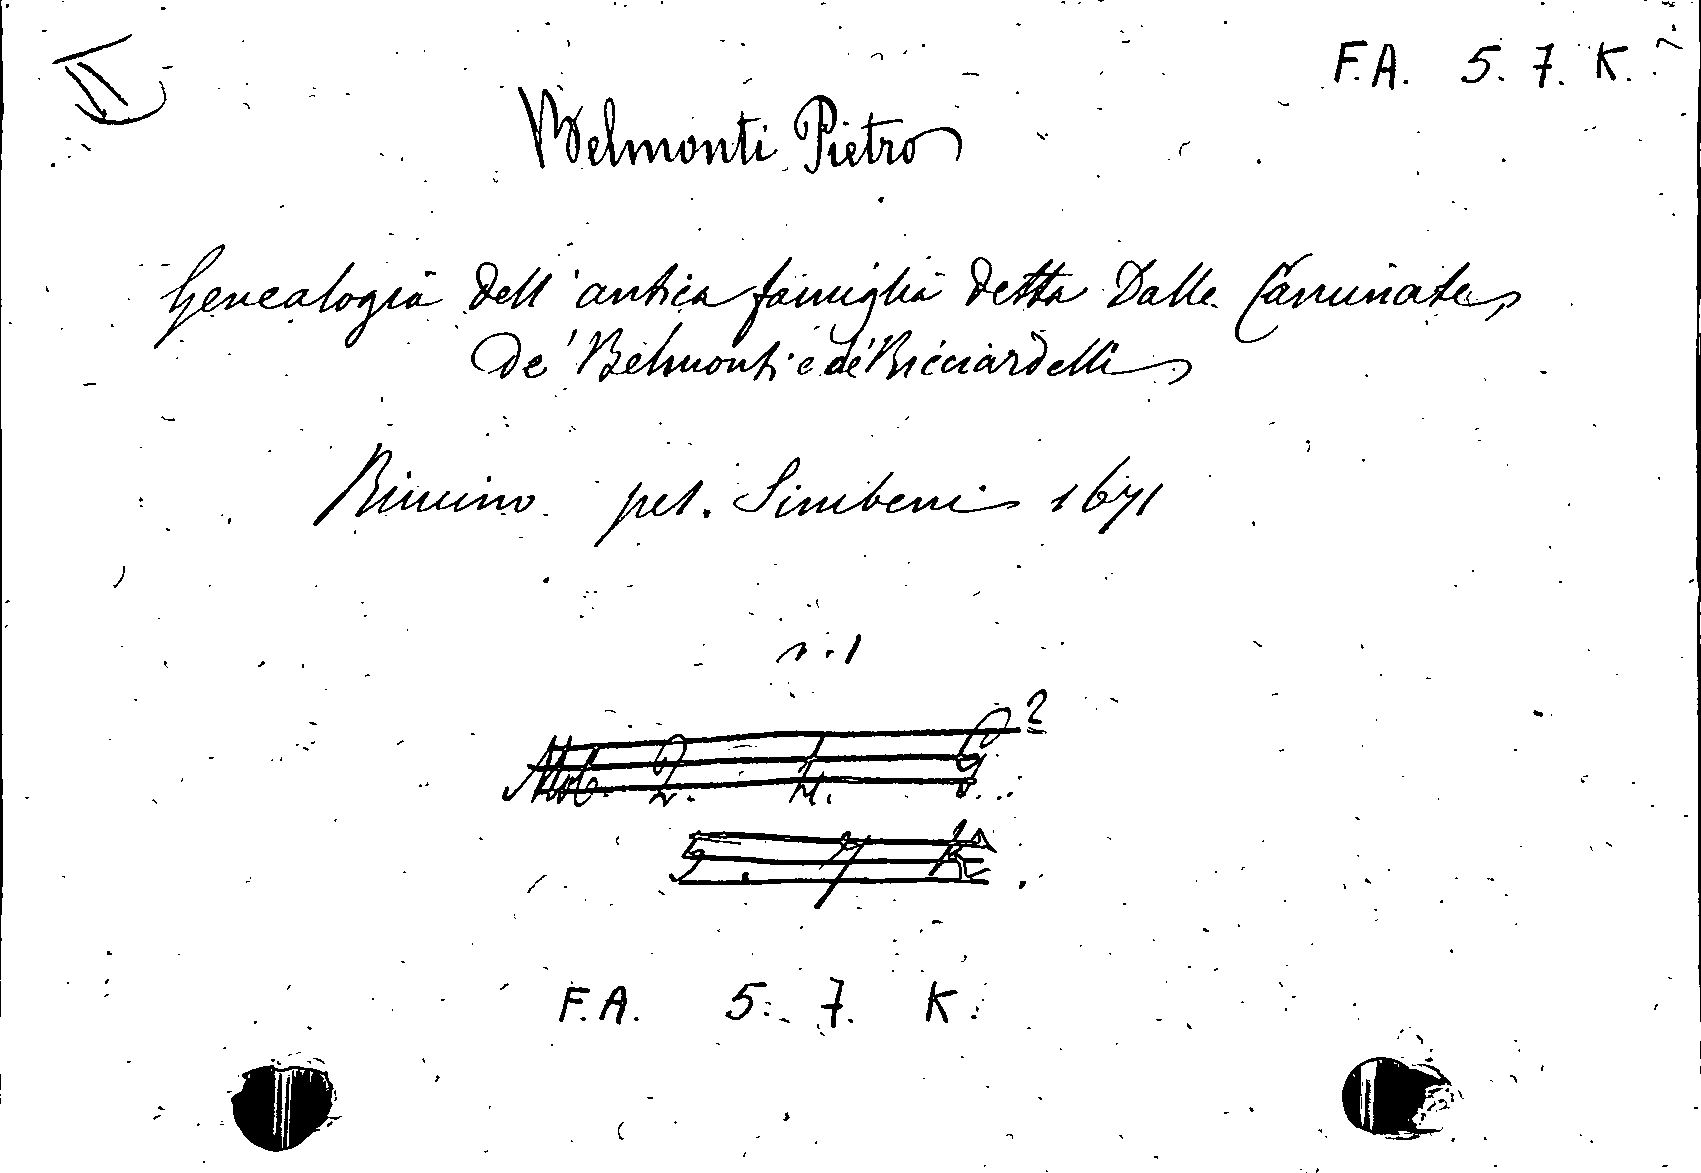 F.A. 5. 7. K.
Belmonti Pietro
Genealogia dell'antica famiglia detta Dalle Caminate
de' Belmonti e de' Ricciardelli
Rimino per. Simbeni 1671
n. 1
Mob. 2. 4.
5. 7 K
F.A. 5. 7. K.